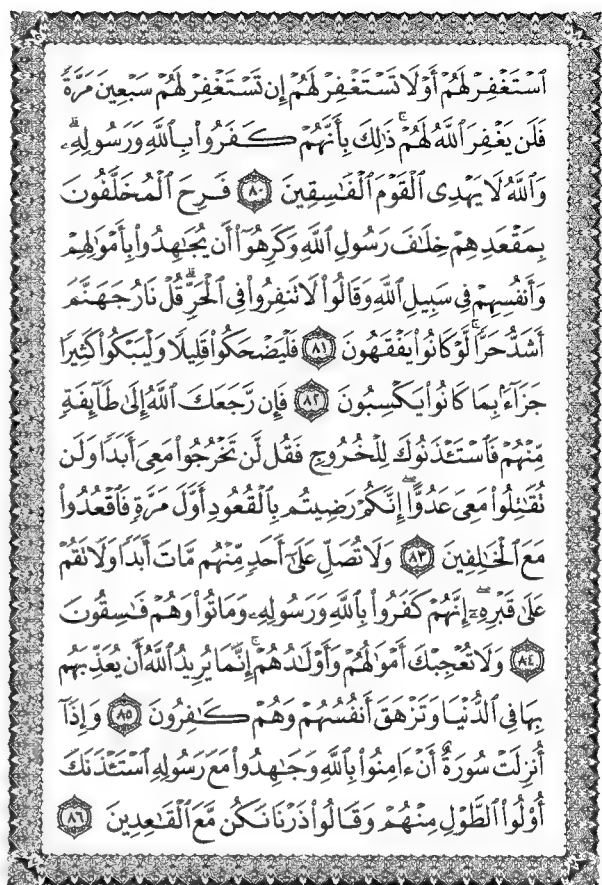 ٱسْتَغْفِرْ لَهُمْ أَوْ لَا تَسْتَغْفِرْ لَهُمْ إِن تَسْتَغْفِرْ لَهُمْ سَبْعِينَ مَرَّةً
فَلَن يَغْفِرَ ٱللَّهُ لَهُمْ ۚ ذَٰلِكَ بِأَنَّهُمْ كَفَرُوا۟ بِٱللَّهِ وَرَسُولِهِۦ ۗ
وَٱللَّهُ لَا يَهْدِى ٱلْقَوْمَ ٱلْفَـٰسِقِينَ ٨٠ فَرِحَ ٱلْمُخَلَّفُونَ
بِمَقْعَدِهِمْ خِلَـٰفَ رَسُولِ ٱللَّهِ وَكَرِهُوٓا۟ أَن يُجَـٰهِدُوا۟ بِأَمْوَٰلِهِمْ
وَأَنفُسِهِمْ فِى سَبِيلِ ٱللَّهِ وَقَالُوا۟ لَا تَنفِرُوا۟ فِى ٱلْحَرِّ ۗ قُلْ نَارُ جَهَنَّمَ
أَشَدُّ حَرًّا ۚ لَّوْ كَانُوا۟ يَفْقَهُونَ ٨١ فَلْيَضْحَكُوا۟ قَلِيلًا وَلْيَبْكُوا۟ كَثِيرًا
جَزَآءًۢ بِمَا كَانُوا۟ يَكْسِبُونَ ٨٢ فَإِن رَّجَعَكَ ٱللَّهُ إِلَىٰ طَآئِفَةٍ
مِّنْهُمْ فَٱسْتَـْٔذَنُوكَ لِلْخُرُوجِ فَقُل لَّن تَخْرُجُوا۟ مَعِىَ أَبَدًا وَلَن
تُقَـٰتِلُوا۟ مَعِىَ عَدُوًّا ۖ إِنَّكُمْ رَضِيتُم بِٱلْقُعُودِ أَوَّلَ مَرَّةٍ فَٱقْعُدُوا۟
مَعَ ٱلْخَـٰلِفِينَ ٨٣ وَلَا تُصَلِّ عَلَىٰٓ أَحَدٍ مِّنْهُم مَّاتَ أَبَدًا وَلَا تَقُمْ
عَلَىٰ قَبْرِهِۦٓ ۖ إِنَّهُمْ كَفَرُوا۟ بِٱللَّهِ وَرَسُولِهِۦ وَمَاتُوا۟ وَهُمْ فَـٰسِقُونَ
٨٤ وَلَا تُعْجِبْكَ أَمْوَٰلُهُمْ وَأَوْلَـٰدُهُمْ ۚ إِنَّمَا يُرِيدُ ٱللَّهُ أَن يُعَذِّبَهُم
بِهَا فِى ٱلدُّنْيَا وَتَزْهَقَ أَنفُسُهُمْ وَهُمْ كَـٰفِرُونَ ٨٥ وَإِذَآ
أُنزِلَتْ سُورَةٌ أَنْ ءَامِنُوا۟ بِٱللَّهِ وَجَـٰهِدُوا۟ مَعَ رَسُولِهِ ٱسْتَـْٔذَنَكَ
أُو۟لُوا۟ ٱلطَّوْلِ مِنْهُمْ وَقَالُوا۟ ذَرْنَا نَكُن مَّعَ ٱلْقَـٰعِدِينَ ٨٦